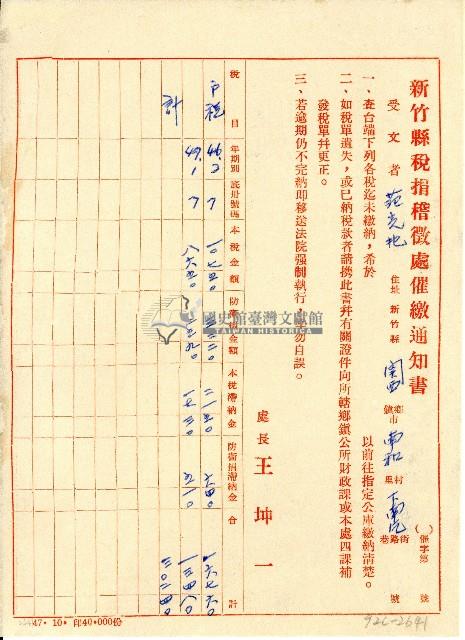 新竹縣稅捐稽徵處催繳通知書
（ ）催字第 號
受文者 范光地 住址 新竹縣 關西 鄉鎮市 南和 村里 下南片 街路巷 號
一、查台端下列各稅迄未繳納，希於 以前往指定公庫繳納清楚。
二、如稅單遺失，或已納稅款者請携此書幷有關證件向所轄鄉鎮公所財政課或本處四課補
發稅單幷更正。
三、若逾期仍不完納即移送法院强制執行，幸勿自誤。
處長 王坤一
稅目 年期別 底册號碼 本稅金額 防衛捐金額 本稅滯納金 防衛捐滯納金 合計
戶稅 46. 2 7 一〇七五〇 三二二〇 二一五〇 六四〇 一六七六〇
47. 1 7 八六五〇 二五九〇 一七三〇 五一〇 一三四八〇
計 三〇二四〇
47．10．印40．000份
國史館臺灣文獻館
TAIWAN HISTORICA
926-2641